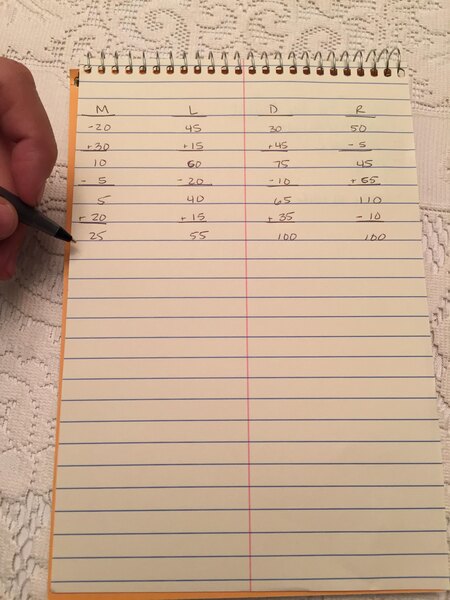 M L D R
-20 45 30 50
+30 +15 +45 -5
10 60 75 45
-5 -20 -10 +65
5 40 65 110
+20 +15 +35 -10
25 55 100 100